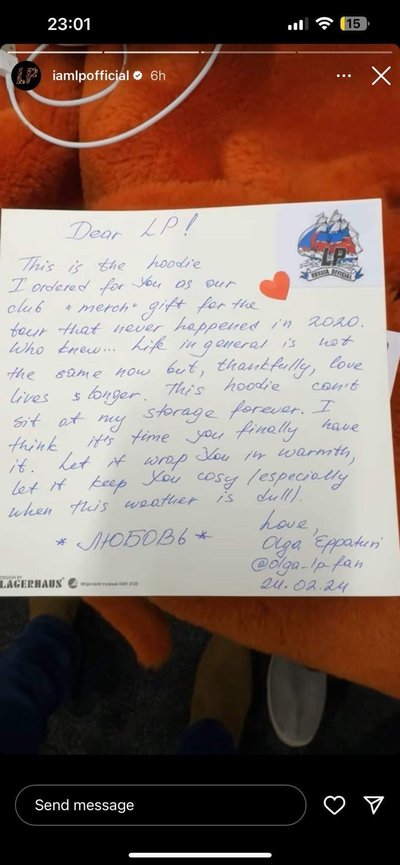 23:01
15
iamlpofficial 6h
Dear LP!
LP
RUSSIA OFFICIAL
This is the hoodie
I ordered for you as our
club "merch" gift for the
tour that never happened in 2020.
Who knew... Life in general is not
the same now but, thankfully, love
lives longer. This hoodie can't
sit at my storage forever. I
think it's time you finally have
it. Let it wrap You in warmth,
let it keep You cosy (especially
when this weather is dull).
* ЛЮБОВЬ *
Love,
Olga Eppaturi
@olga_lp_fan
24.02.24
DESIGN BY
LAGERHAUS
Send message